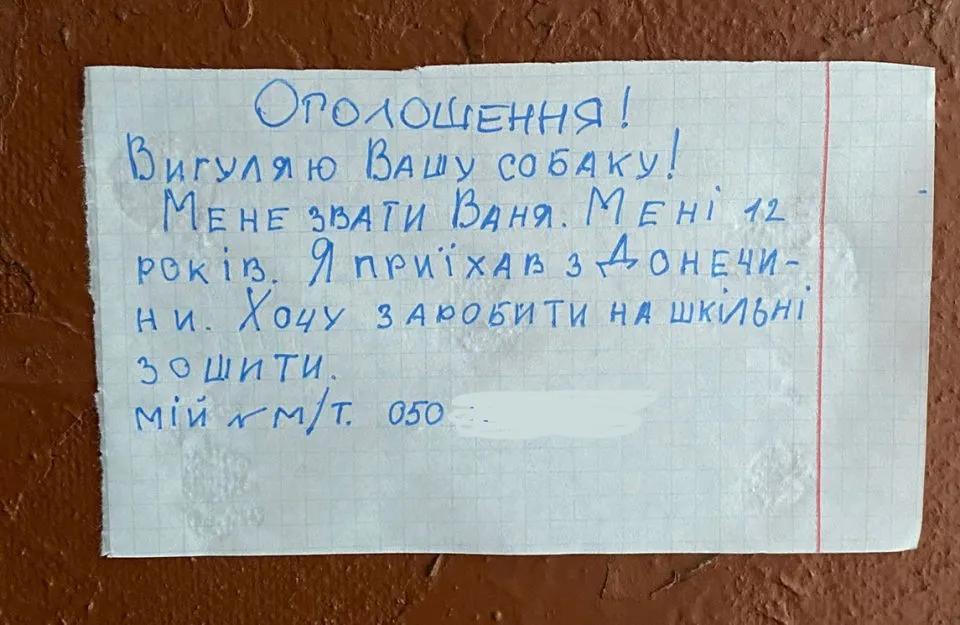 Оголошення!
Вигуляю Вашу собаку!
Мене звати Ваня. Мені 12
років. Я приїхав з Донечи-
ни. Хочу заробити на шкільні
зошити.
мій № м/т. 050